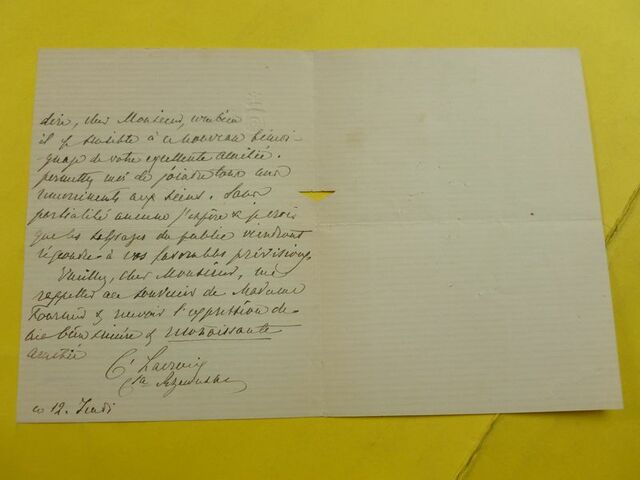 dire, cher Monsieur, combien
il est sensible à ce nouveau témoi-
gnage de votre excellente amitié.
permettez moi de joindre tous mes
remerciments aux siens. Sans
partialité aucune j'espère & je crois
que les suffrages du public viendront
répondre à vos favorables prévisions
Veuillez, cher Monsieur, me
rappeller au souvenir de Madame
Fournier & recevoir l'expression de
ma bien sincère & reconnaissante
amitié
ce 12. Jeudi